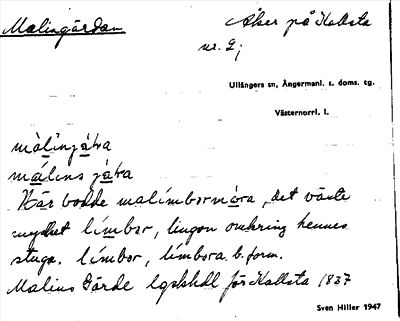 Malingärdan
Åker på Kallsta
nr. 2;
Ullångers sn, Ångermanl. s. doms. tg.
Västernorrl. l.
målinjåra
målins jåra
Här bodde malímbormora, det växte
mycket límbor, lingon omkring hennes
stuga. límbor, límbora b. form.
Malins Gärde lgskhdl för Kallsta 1837
Sven Hiller 1947